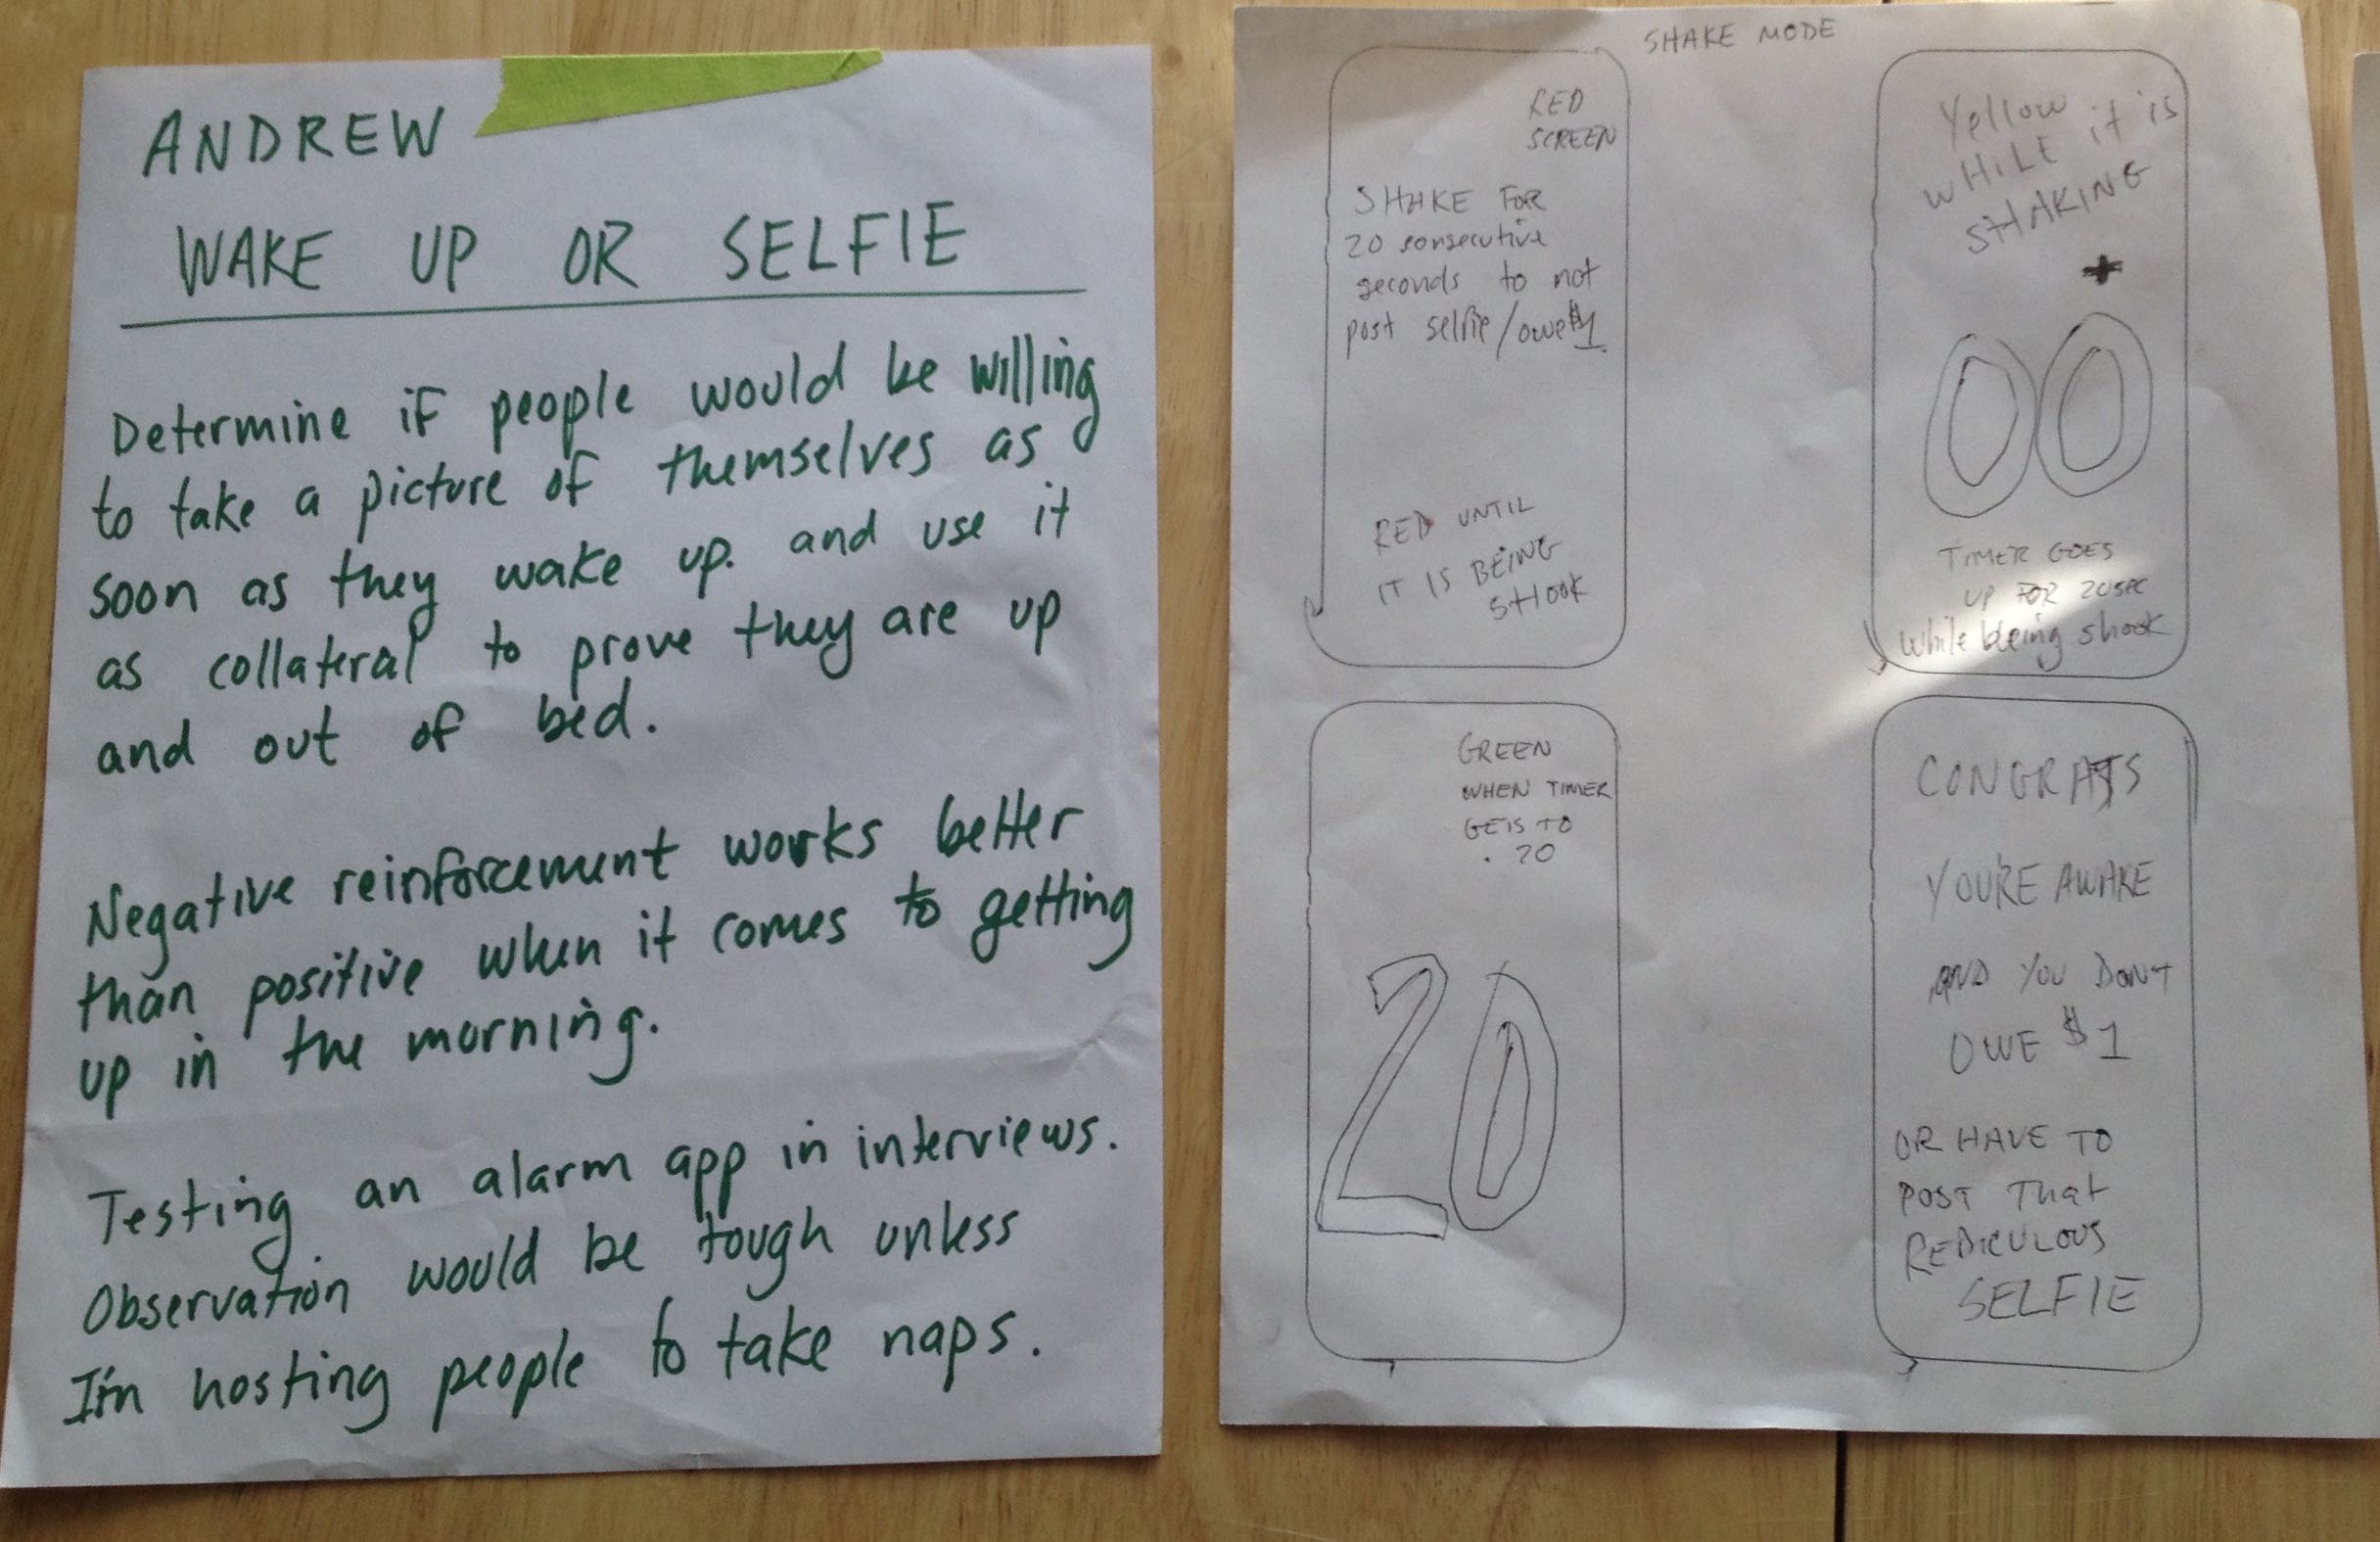 ANDREW
WAKE UP OR SELFIE
Determine if people would be willing
to take a picture of themselves as
soon as they wake up. and use it
as collateral to prove they are up
and out of bed.
Negative reinforcement works better
than positive when it comes to getting
up in the morning.
Testing an alarm app in interviews.
Observation would be tough unless
I'm hosting people to take naps.
SHAKE MODE
RED
SCREEN
SHAKE FOR
20 consecutive
seconds to not
post selfie/owe $1.
RED UNTIL
IT IS BEING
SHOOK
Yellow
WHILE it is
SHAKING
+
00
TIMER GOES
UP FOR 20SEC
while being shook
GREEN
WHEN TIMER
GETS TO
. 20
20
CONGRATS
YOU'RE AWAKE
AND YOU DON'T
OWE $1
OR HAVE TO
POST THAT
REDICULOUS
SELFIE